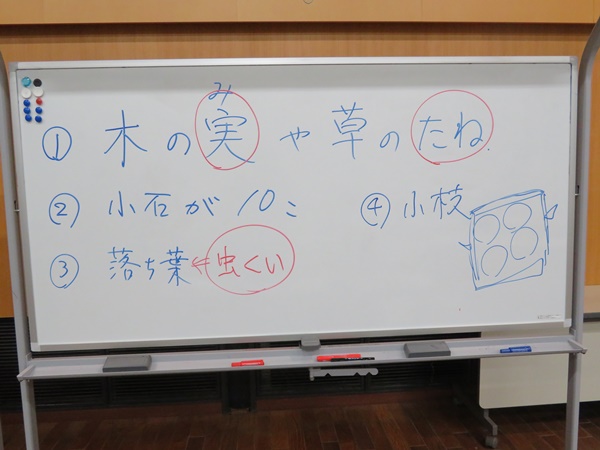 み
① 木の実や草のたね
② 小石が10こ
④ 小枝
③ 落ち葉←虫くい